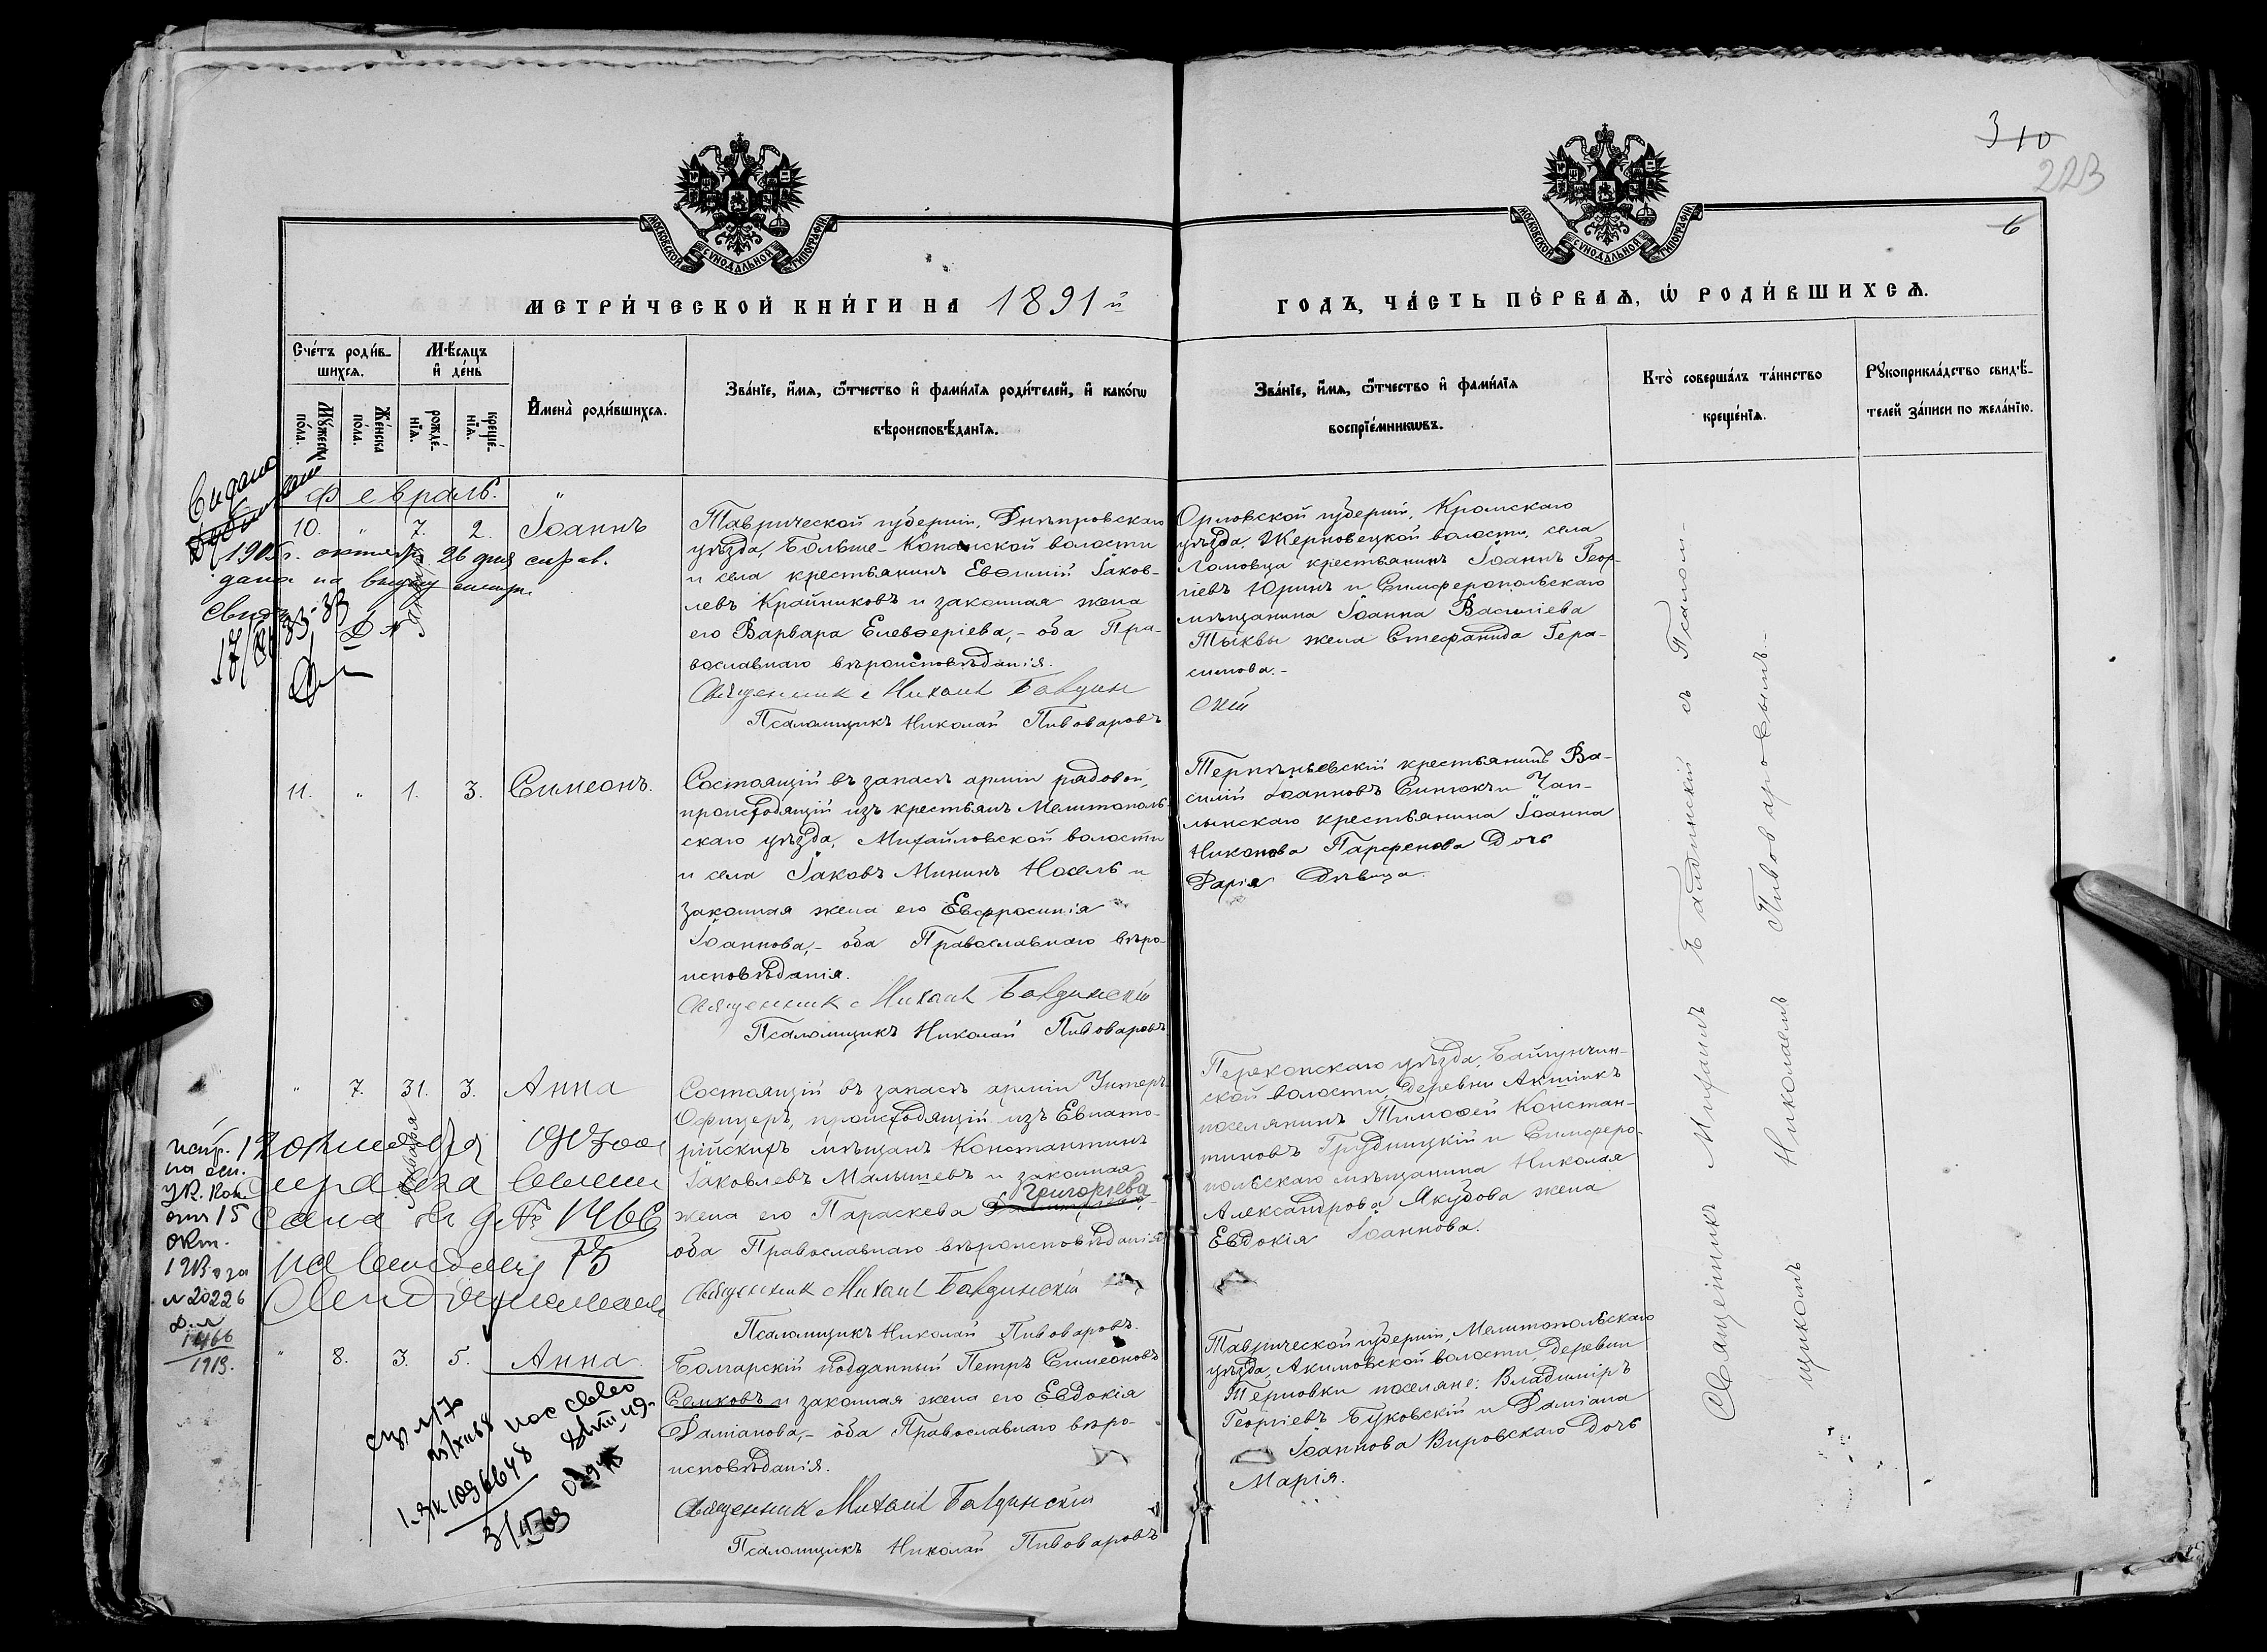 310
223
6
МОСКОВСКОЙ СѴНОДАЛЬНОЙ ТИПОГРАФІИ
МОСКОВСКОЙ СѴНОДАЛЬНОЙ ТИПОГРАФІИ
МЕТРИ́ЧЕСКОЙ КНИ́ГИ НА 1891 й
ГОДЪ, ЧА́СТЬ ПЕ́РВАѦ, Ѡ҆ РОДИ́ВШИХСѦ.
Счéтъ роди́в-
шихсѧ.
Мꙋ́жеск.
по́ла.
Же́нска
по́ла.
Мѣ́сѧцъ
и҆ де́нь
рожде́-
нїѧ.
креще́-
нїѧ.
И҆мена̀ роди́вшихсѧ.
Зва́нїе, и҆́мѧ, ѻ҆́тчество и҆ фами́лїѧ роди́телей, и҆ како́гѡ
вѣроисповѣ́данїѧ.
Зва́нїе, и҆́мѧ, ѻ҆́тчество и҆ фами́лїѧ
воспрїе́мникѡвъ.
Кто̀ соверша́лъ та́инство
креще́нїѧ.
Рꙋкоприкла́дство свидѣ́-
телей за́писи по жела́нїю.
Февраль.
10. " 7. 2. Іоаннъ
Таврической губерніи, Днѣпровскаго
уѣзда, Больше-Копанской волости
и села крестьянинъ Евѳимій Іаков-
левъ Крайниковъ и законная жена
его Варвара Елевѳеріева,- оба Пра-
вославнаго вѣроисповѣданія.
Священникъ Михаил
Псаломщикъ Николай Пивоваровъ
Орловской губерніи, Кромскаго
уѣзда, Жерновецкой волости, села
Ломовца крестьянинъ Іоаннъ Геор-
гіевъ Юринъ и Симферопольскаго
мѣщанина Іоанна Василіева
Тыквы жена Стефанида Гера-
симова.-
1905 г. октября 26 дня справ.
дана на выдачу
11. " 1. 3. Симеонъ.
Состоящій въ запасѣ арміи рядовой,
происходящій изъ крестьянъ Мелитополь-
скаго уѣзда, Михайловской волости
и села Іаковъ Мининъ Носель и
законная жена его Евфросинія
Іоаннова,- оба Православнаго вѣро-
исповѣданія.
Священникъ Михаил Балдинскій
Псаломщикъ Николай Пивоваровъ
Терпѣньевскій крестьянинъ Ва-
силій Іоанновъ Синюкъ и Чап-
лынскаго крестьянина Іоанна
Никонова Парфенова дочь
Дарія дѣвица.
" 7. 31. 3. Анна
января
Состоящій въ запасѣ арміи Унтеръ
Офицеръ, происходящій изъ Евпато-
рійскихъ мѣщанъ Константинъ
Іаковлевъ Малышевъ и законная
Григорьева
жена его Параскева
оба Православнаго вѣроисповѣданія.
Священникъ Михаил Балдинскій
Псаломщикъ Николай Пивоваровъ.
Перекопскаго уѣзда,
ской волости, деревни Акшіикъ
поселянинъ Тимоѳей Констан-
тиновъ Грудницкій и Симферо-
польскаго мѣщанина Николая
Александрова Якубова жена
Евдокія Іоаннова.
15
окт.
№ 20226
1466
1913.
" 8. 3. 5. Анна.
Болгарскій подданный Петръ Симеоновъ
Семковъ и законная жена его Евдокія
Даміанова,- оба Православнаго вѣро-
исповѣданія.
Священникъ Михаил Балдинскій
Псаломщикъ Николай Пивоваровъ
Таврической губерніи, Мелитопольскаго
уѣзда, Акимовской волости, деревни
Терновки поселяне: Владиміръ
Георгіевъ Буковскій и Даміана
Іоаннова Вировскаго дочь
Марія.
Священникъ Михаилъ Балдинскій съ Псалом-
щикомъ Николаемъ Пивоваровымъ.-